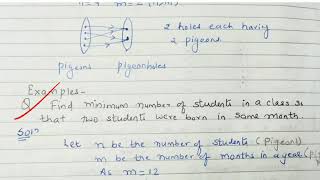 2 holes each having
2 pigeons
pigeons pigeonholes
Examples-
Q. Find minimum number of students in a class so
that two students were born in same month.
Soln
Let n be the number of students (pigeons)
m be the number of months in a year (pig
As m=12